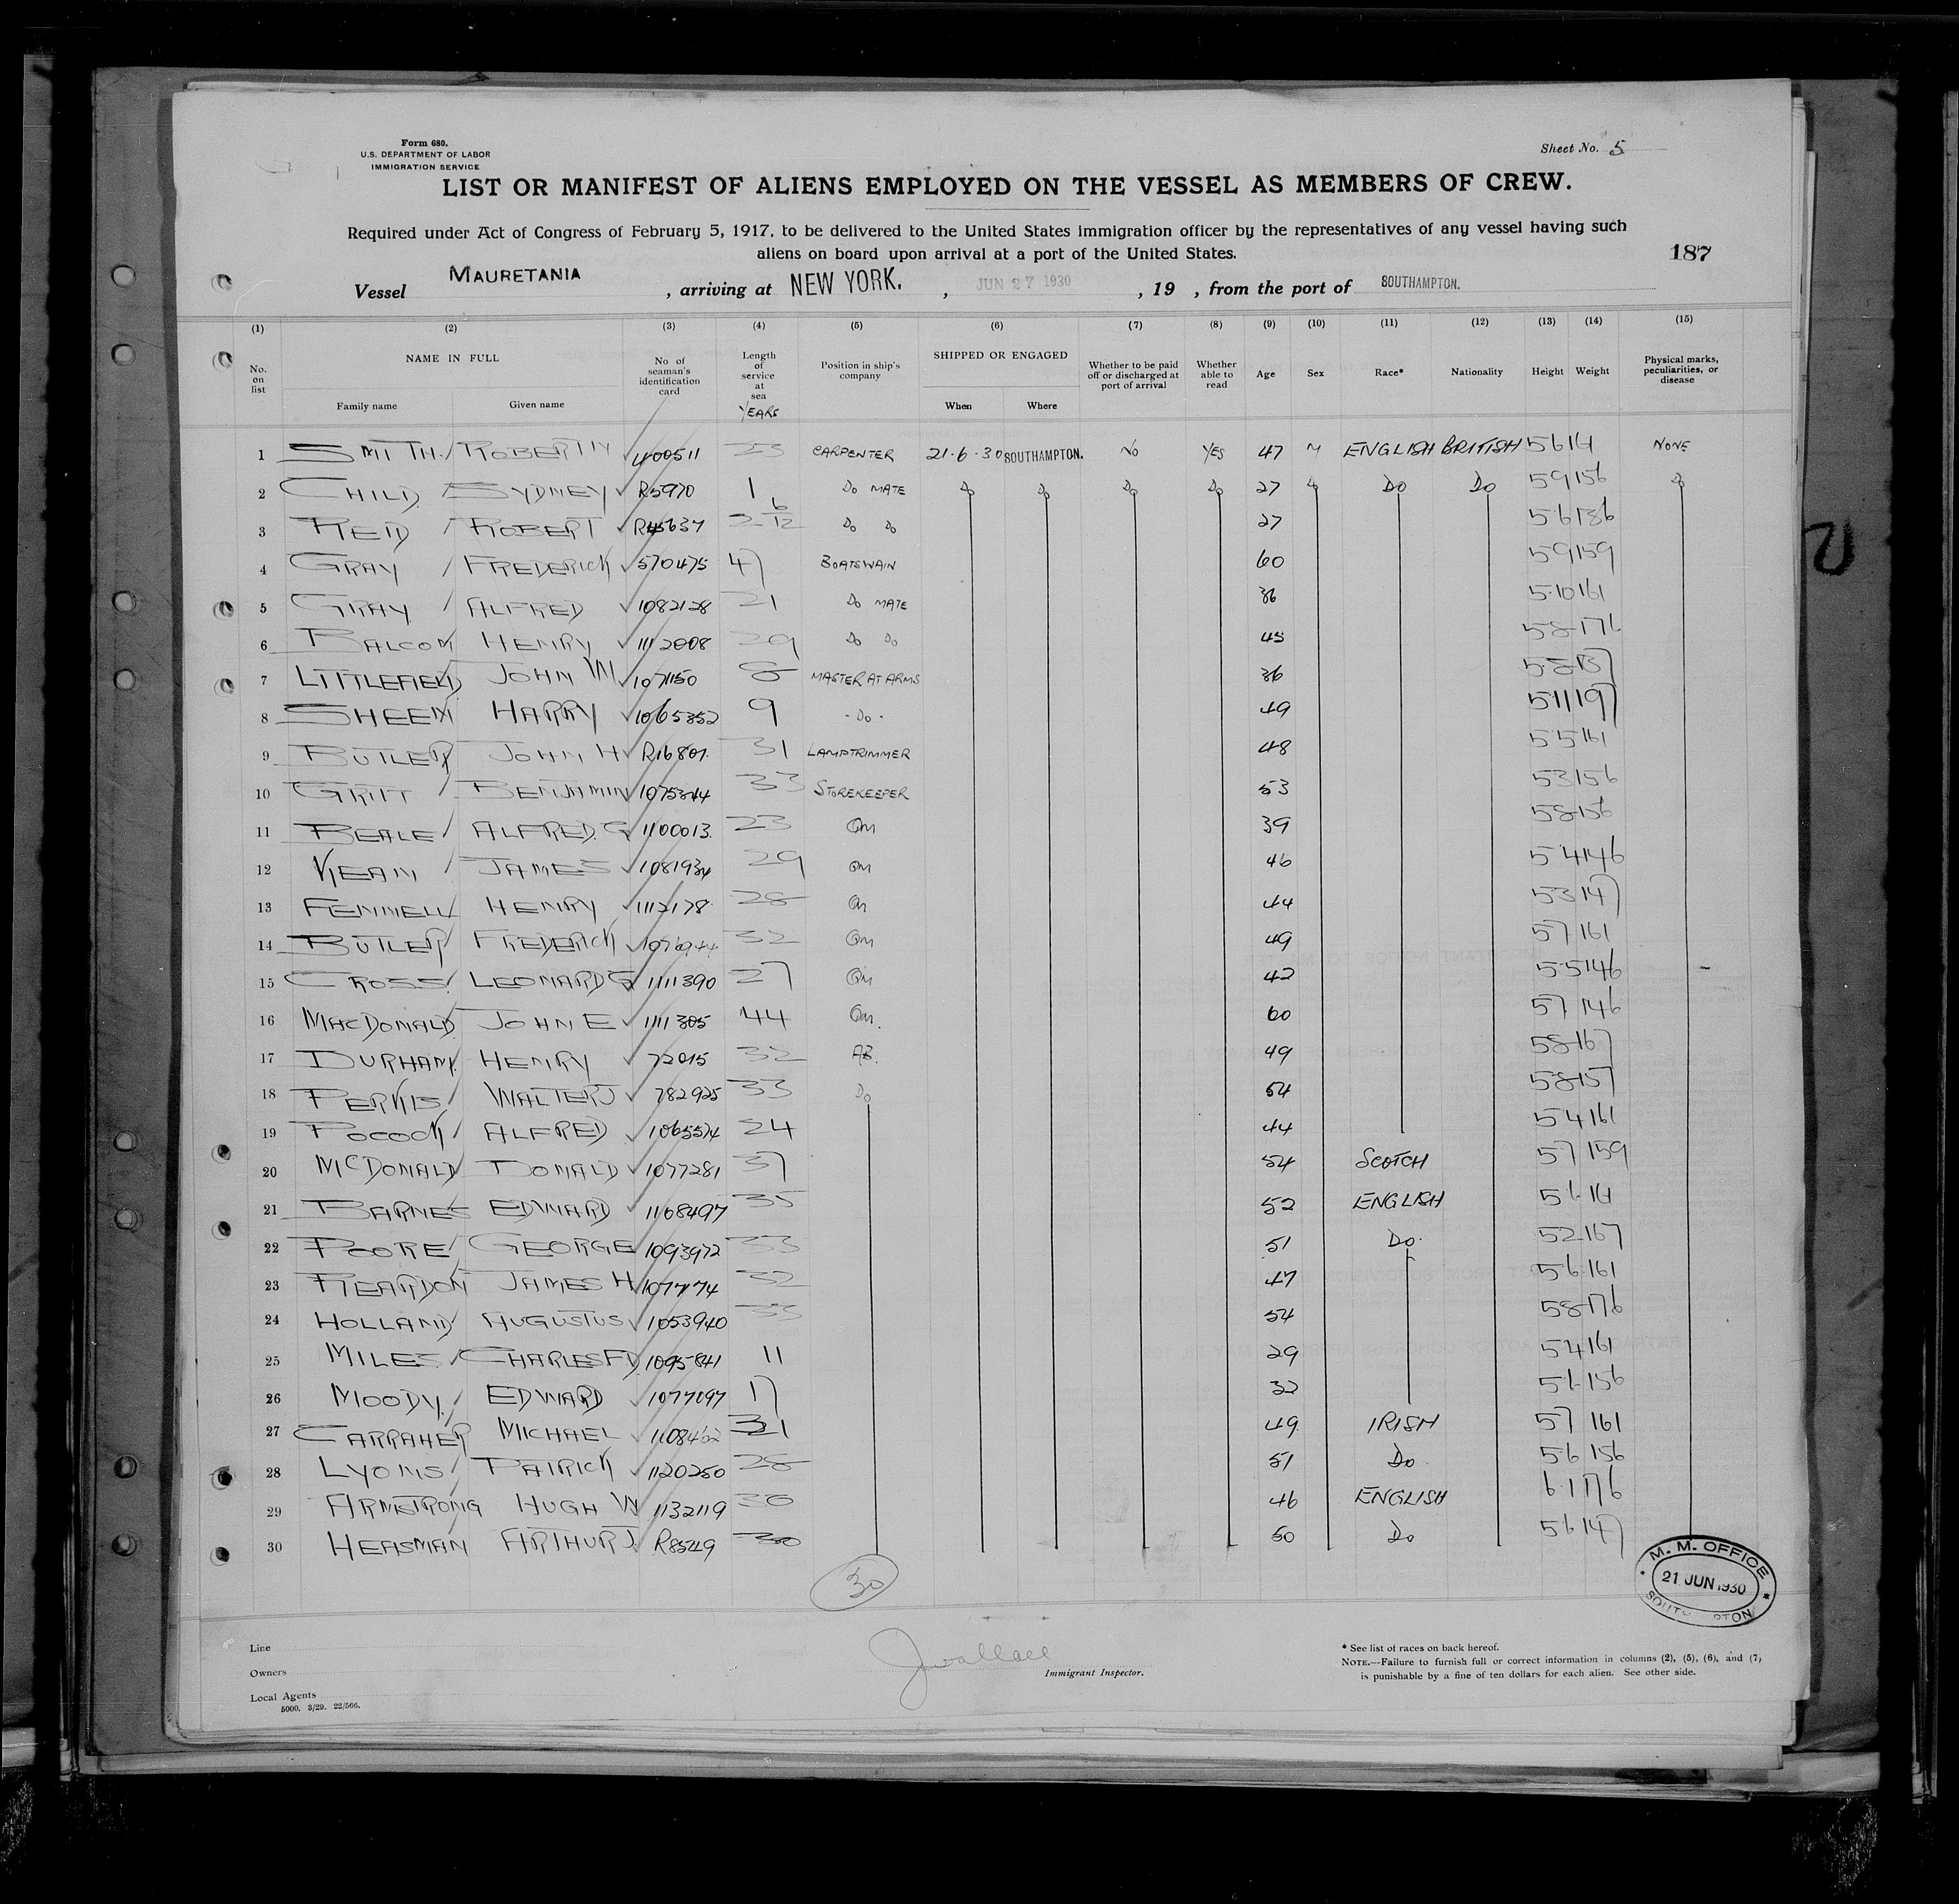 Form 680.
U.S. DEPARTMENT OF LABOR
IMMIGRATION SERVICE
Sheet No. 5
LIST OR MANIFEST OF ALIENS EMPLOYED ON THE VESSEL AS MEMBERS OF CREW.
Required under Act of Congress of February 5, 1917, to be delivered to the United States immigration officer by the representatives of any vessel having such
aliens on board upon arrival at a port of the United States.
187
Vessel MAURETANIA , arriving at NEW YORK. , JUN 27 1930 , 19 , from the port of SOUTHAMPTON.
(1) (2) (3) (4) (5) (6) (7) (8) (9) (10) (11) (12) (13) (14) (15)
No. on list NAME IN FULL Family name Given name No of seaman's identification card Length of service at sea YEARS Position in ship's company SHIPPED OR ENGAGED When Where Whether to be paid off or discharged at port of arrival Whether able to read Age Sex Race* Nationality Height Weight Physical marks, peculiarities, or disease
1 SMITH. ROBERT W 400511 23 CARPENTER 21·6·30 SOUTHAMPTON. NO YES 47 M ENGLISH BRITISH 5 6 NONE
2 CHILD SYDNEY R5970 1 Do MATE Do Do Do Do 27 Do Do Do 5 9 156 Do
3 REID ROBERT 2 6/12 Do Do 27 5 6 136
4 GRAY FREDERICK 570475 47 BOATSWAIN 60 5 9 159
5 GRAY ALFRED 1082128 21 Do MATE 36 5·10 161
6 BALCOM HENRY 1112008 29 Do Do 45 5 8 176
7 LITTLEFIELD JOHN W 1071150 8 MASTER AT ARMS 36 5·8 137
8 SHEEN HARRY 1065352 9 - Do - 49 5 11 197
9 BUTLER JOHN H R16807. 31 LAMPTRIMMER 48 5 5 161
10 GRITT BENJAMIN 1075344 33 STOREKEEPER 53 5 3 156
11 BEALE ALFRED. G 1100013. 23 QM 39 5 8 156
12 KEAN JAMES 1081934 29 QM 46 5 4 146
13 FENNELL HENRY 1112178 28 QM 44 5 3 147
14 BUTLER FREDERICK 32 QM 49 5 7 161
15 CROSS LEONARD G 1111390 27 QM 42 5·5 146
16 MACDONALD JOHN E 1111305 44 QM. 60 5 7 146
17 DURHAM. HENRY 72015 32 AB. 49 5 8 167
18 PERKIS WALTER J 782925 33 Do 54 5 8 157
19 POCOCK ALFRED 1065574 24 44 5 4 161
20 MCDONALD DONALD 1077281 37 54 SCOTCH 5 7 159
21 BARNES EDWARD 1108497 35 52 ENGLISH 5 6
22 POORE GEORGE 1093972 33 51 Do. 5 2 167
23 REARDON JAMES H 32 47 5 6 161
24 HOLLAND AUGUSTUS 1053940 33 54 5 8 176
25 MILES CHARLES F D 1095841 11 29 5 4 161
26 MOODY. EDWARD 1077097 17 32 5 6 156
27 CARRAHER MICHAEL 31 49 IRISH 5 7 161
28 LYONS PATRICK 1120250 28 51 Do 5 6 156
29 ARMSTRONG HUGH W 1132119 30 46 ENGLISH 6·1 176
30 HEASMAN ARTHUR J. R85219 30 50 Do 5 6 147
30
M. M. OFFICE
21 JUN 1930
Line
Owners
Local Agents
5000. 3/29. 22/566.
J Wallace
Immigrant Inspector.
* See list of races on back hereof.
NOTE.—Failure to furnish full or correct information in columns (2), (5), (6), and (7)
is punishable by a fine of ten dollars for each alien. See other side.